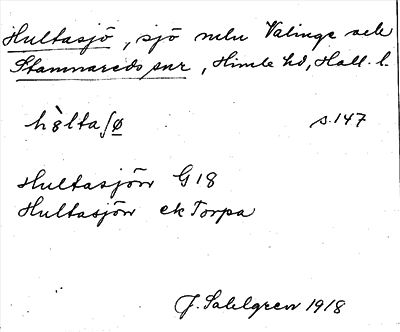 Hultasjö, sjö mellan Valinge och
Stamnareds snr, Himle hd, Hall. l.
hòlta∫ø s. 147
Hultasjön G 18
Hultasjön ek Torpa
J. Sahlgren 1918